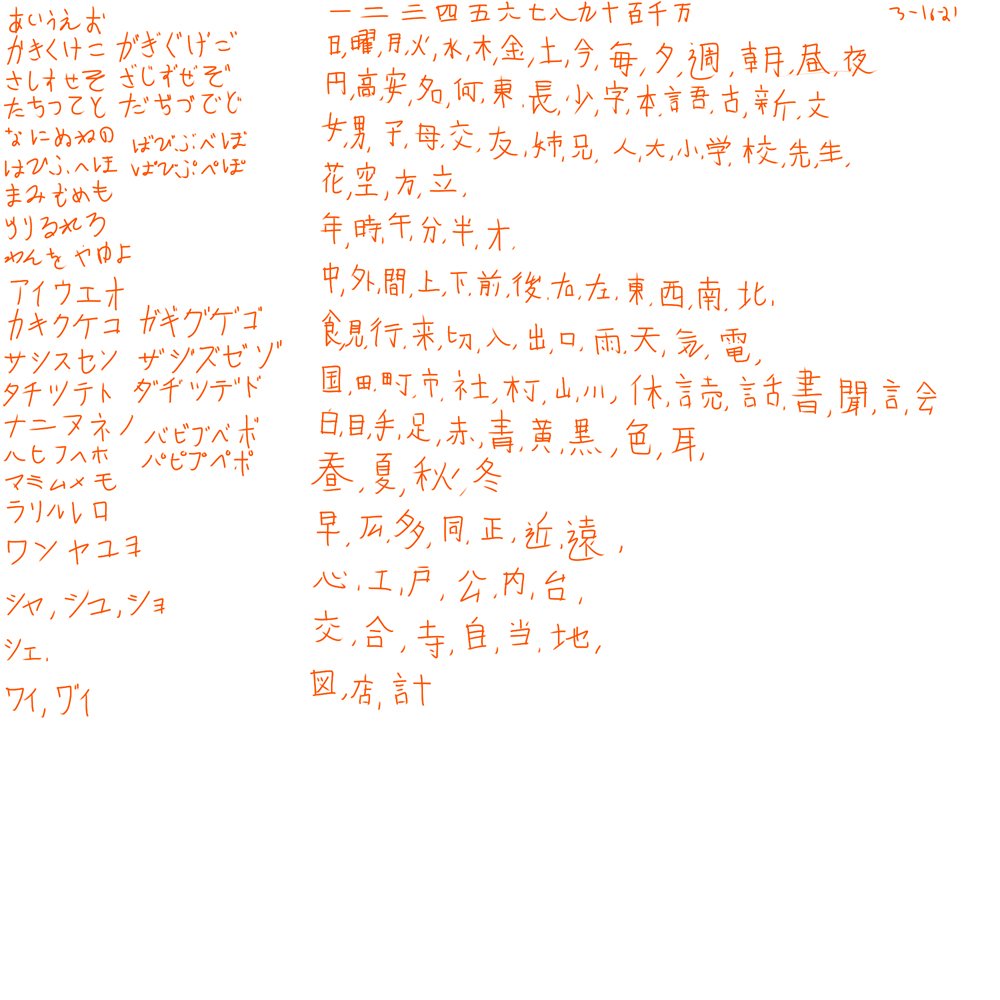 あいうえお
かきくけこ がぎぐげご
さしすせそ ざじずぜぞ
たちってと だぢづでど
なにぬねの ばびぶべぼ
はひふへほ ぱぴぷぺぽ
まみむめも
りりるれろ
わんをやゆよ
アイウエオ
カキクケコ ガギグゲゴ
サシスセソ ザジズゼゾ
タチツテト ダヂヅデド
ナニヌネノ バビブベボ
ハヒフヘホ パピプペポ
マミムメモ
ラリルレロ
ワンヤユヨ
シャ,シュ,ショ
シェ.
ワイ,ヴイ
一二三四五六七八九十百千万
3-16-21
日,曜,月,火,水,木,金,土,今,毎,夕,週,朝,昼,夜
円,高,安,名,何,東,長,少,字,本,語,古,新,文
女,男,子,母,交,友,姉,兄,人,大,小,学,校,先,生.
花,空,方,立.
年,時,午,分,半,才.
中,外,間,上,下,前,後,右,左,東,西,南,北.
食,見,行,来,切,入,出,口,雨,天,気,電,
国,田,町,市,社,村,山,川,休,読,話,書,聞,言,会
白,目,手,足,赤,青,黄,黒,色,耳,
春,夏,秋,冬
早,広,多,同,正,近,遠,
心,工,戸,公,内,台,
交,合,寺,自,当,地,
図,店,計